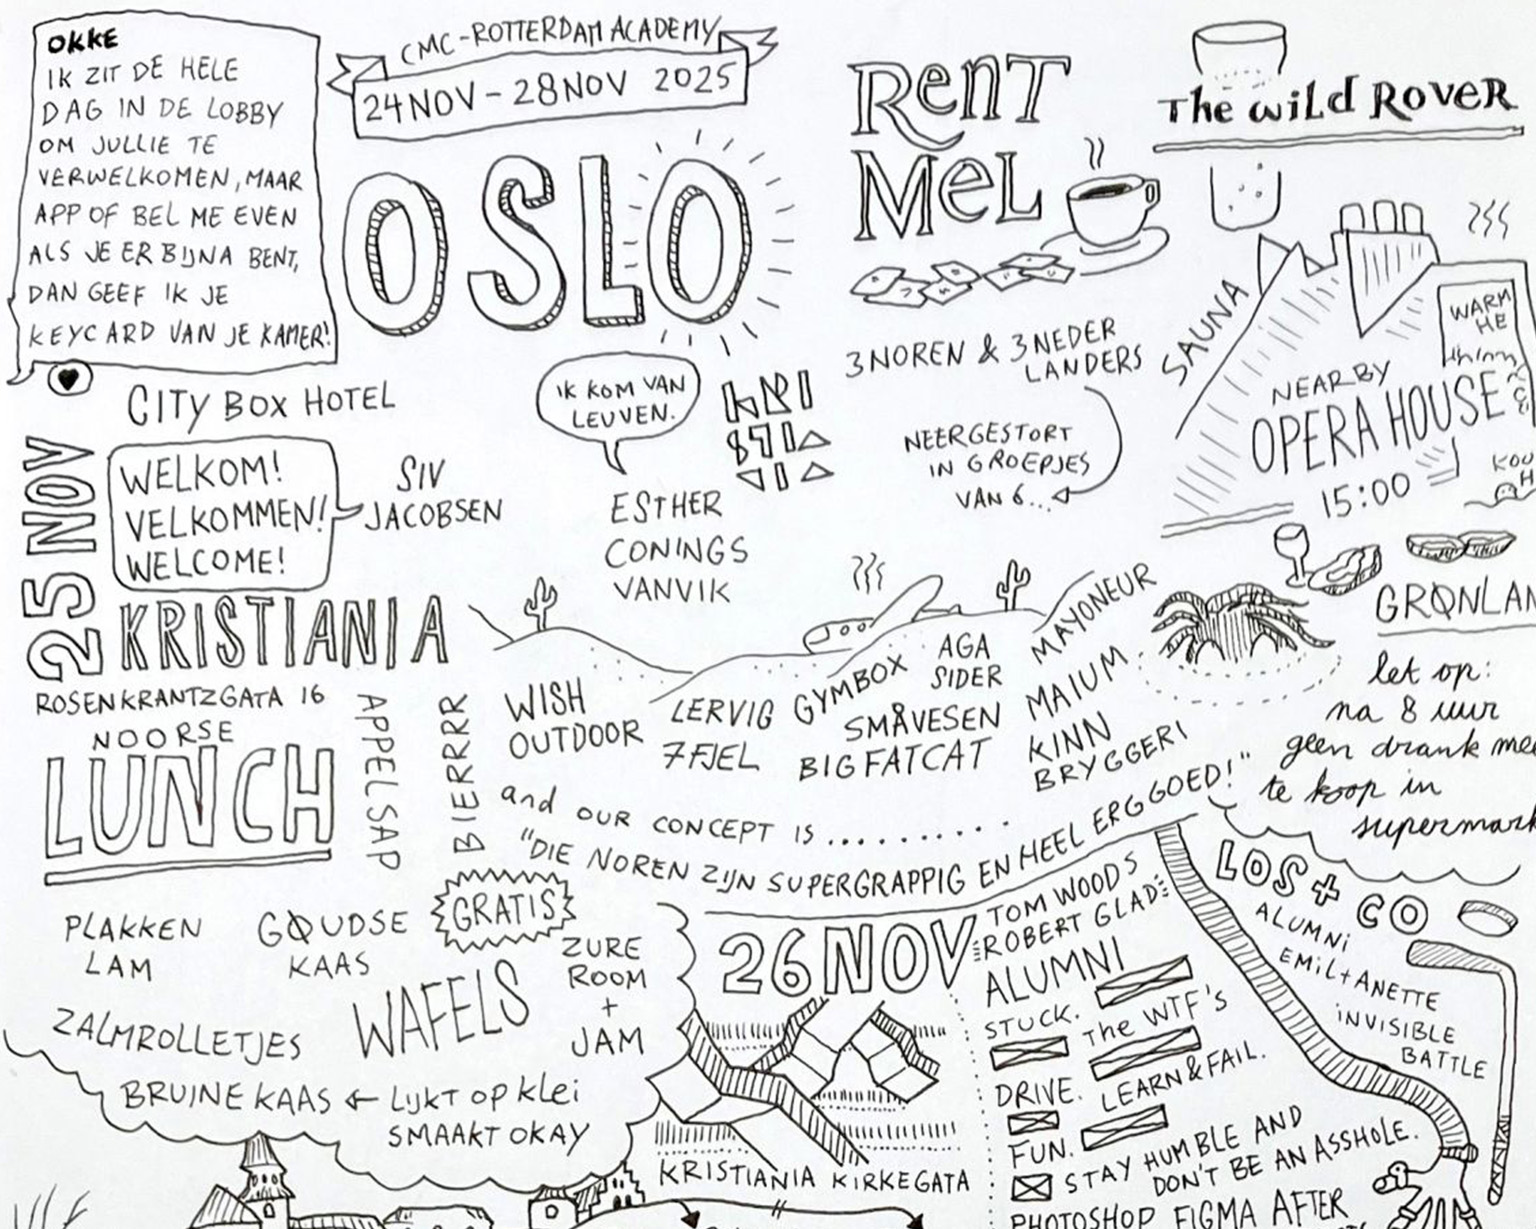 OKKE
IK ZIT DE HELE
DAG IN DE LOBBY
OM JULLIE TE
VERWELKOMEN, MAAR
APP OF BEL ME EVEN
ALS JE ER BIJNA BENT,
DAN GEEF IK JE
KEYCARD VAN JE KAMER!
CMC-ROTTERDAM ACADEMY
24NOV-28NOV 2025
OSLO
RENT
MEL
The wild Rover
CITY BOX HOTEL
IK KOM VAN
LEUVEN.
ESTHER
CONINGS
VANVIK
3 NOREN & 3 NEDER
LANDERS
NEERGESTORT
IN GROEPJES
VAN 6...
SAUNA
WARM
HE
NEARBY
OPERA HOUSE
15:00
25 NOV
WELKOM!
VELKOMMEN!
WELCOME!
SIV
JACOBSEN
KRISTIANIA
ROSENKRANTZGATA 16
NOORSE
LUNCH
APPELSAP
BIERRRR
WISH
OUTDOOR
LERVIG
7FJEL
GYMBOX
AGA
SIDER
SMÅVESEN
BIGFATCAT
MAYONEUR
MAIUM
KINN
BRYGGERI
and OUR CONCEPT IS..........
"DIE NOREN ZIJN SUPERGRAPPIG EN HEEL ERG GOED!"
GRØNLAN
let op:
na 8 uur
geen drank mee
te koop in
supermark
PLAKKEN
LAM
GOUDSE
KAAS
GRATIS
ZURE
ROOM
+
JAM
WAFELS
ZALMROLLETJES
BRUINE KAAS ← LIJKT OP KLEI
SMAAKT OKAY
26 NOV
KRISTIANIA KIRKEGATA
TOM WOODS
ROBERT GLAD
ALUMNI
STUCK.
The WTF's
DRIVE.
LEARN & FAIL.
FUN.
STAY HUMBLE AND
DON'T BE AN ASSHOLE.
PHOTOSHOP FIGMA AFTER
LOS + CO
ALUMNI
EMIL + ANETTE
INVISIBLE
BATTLE